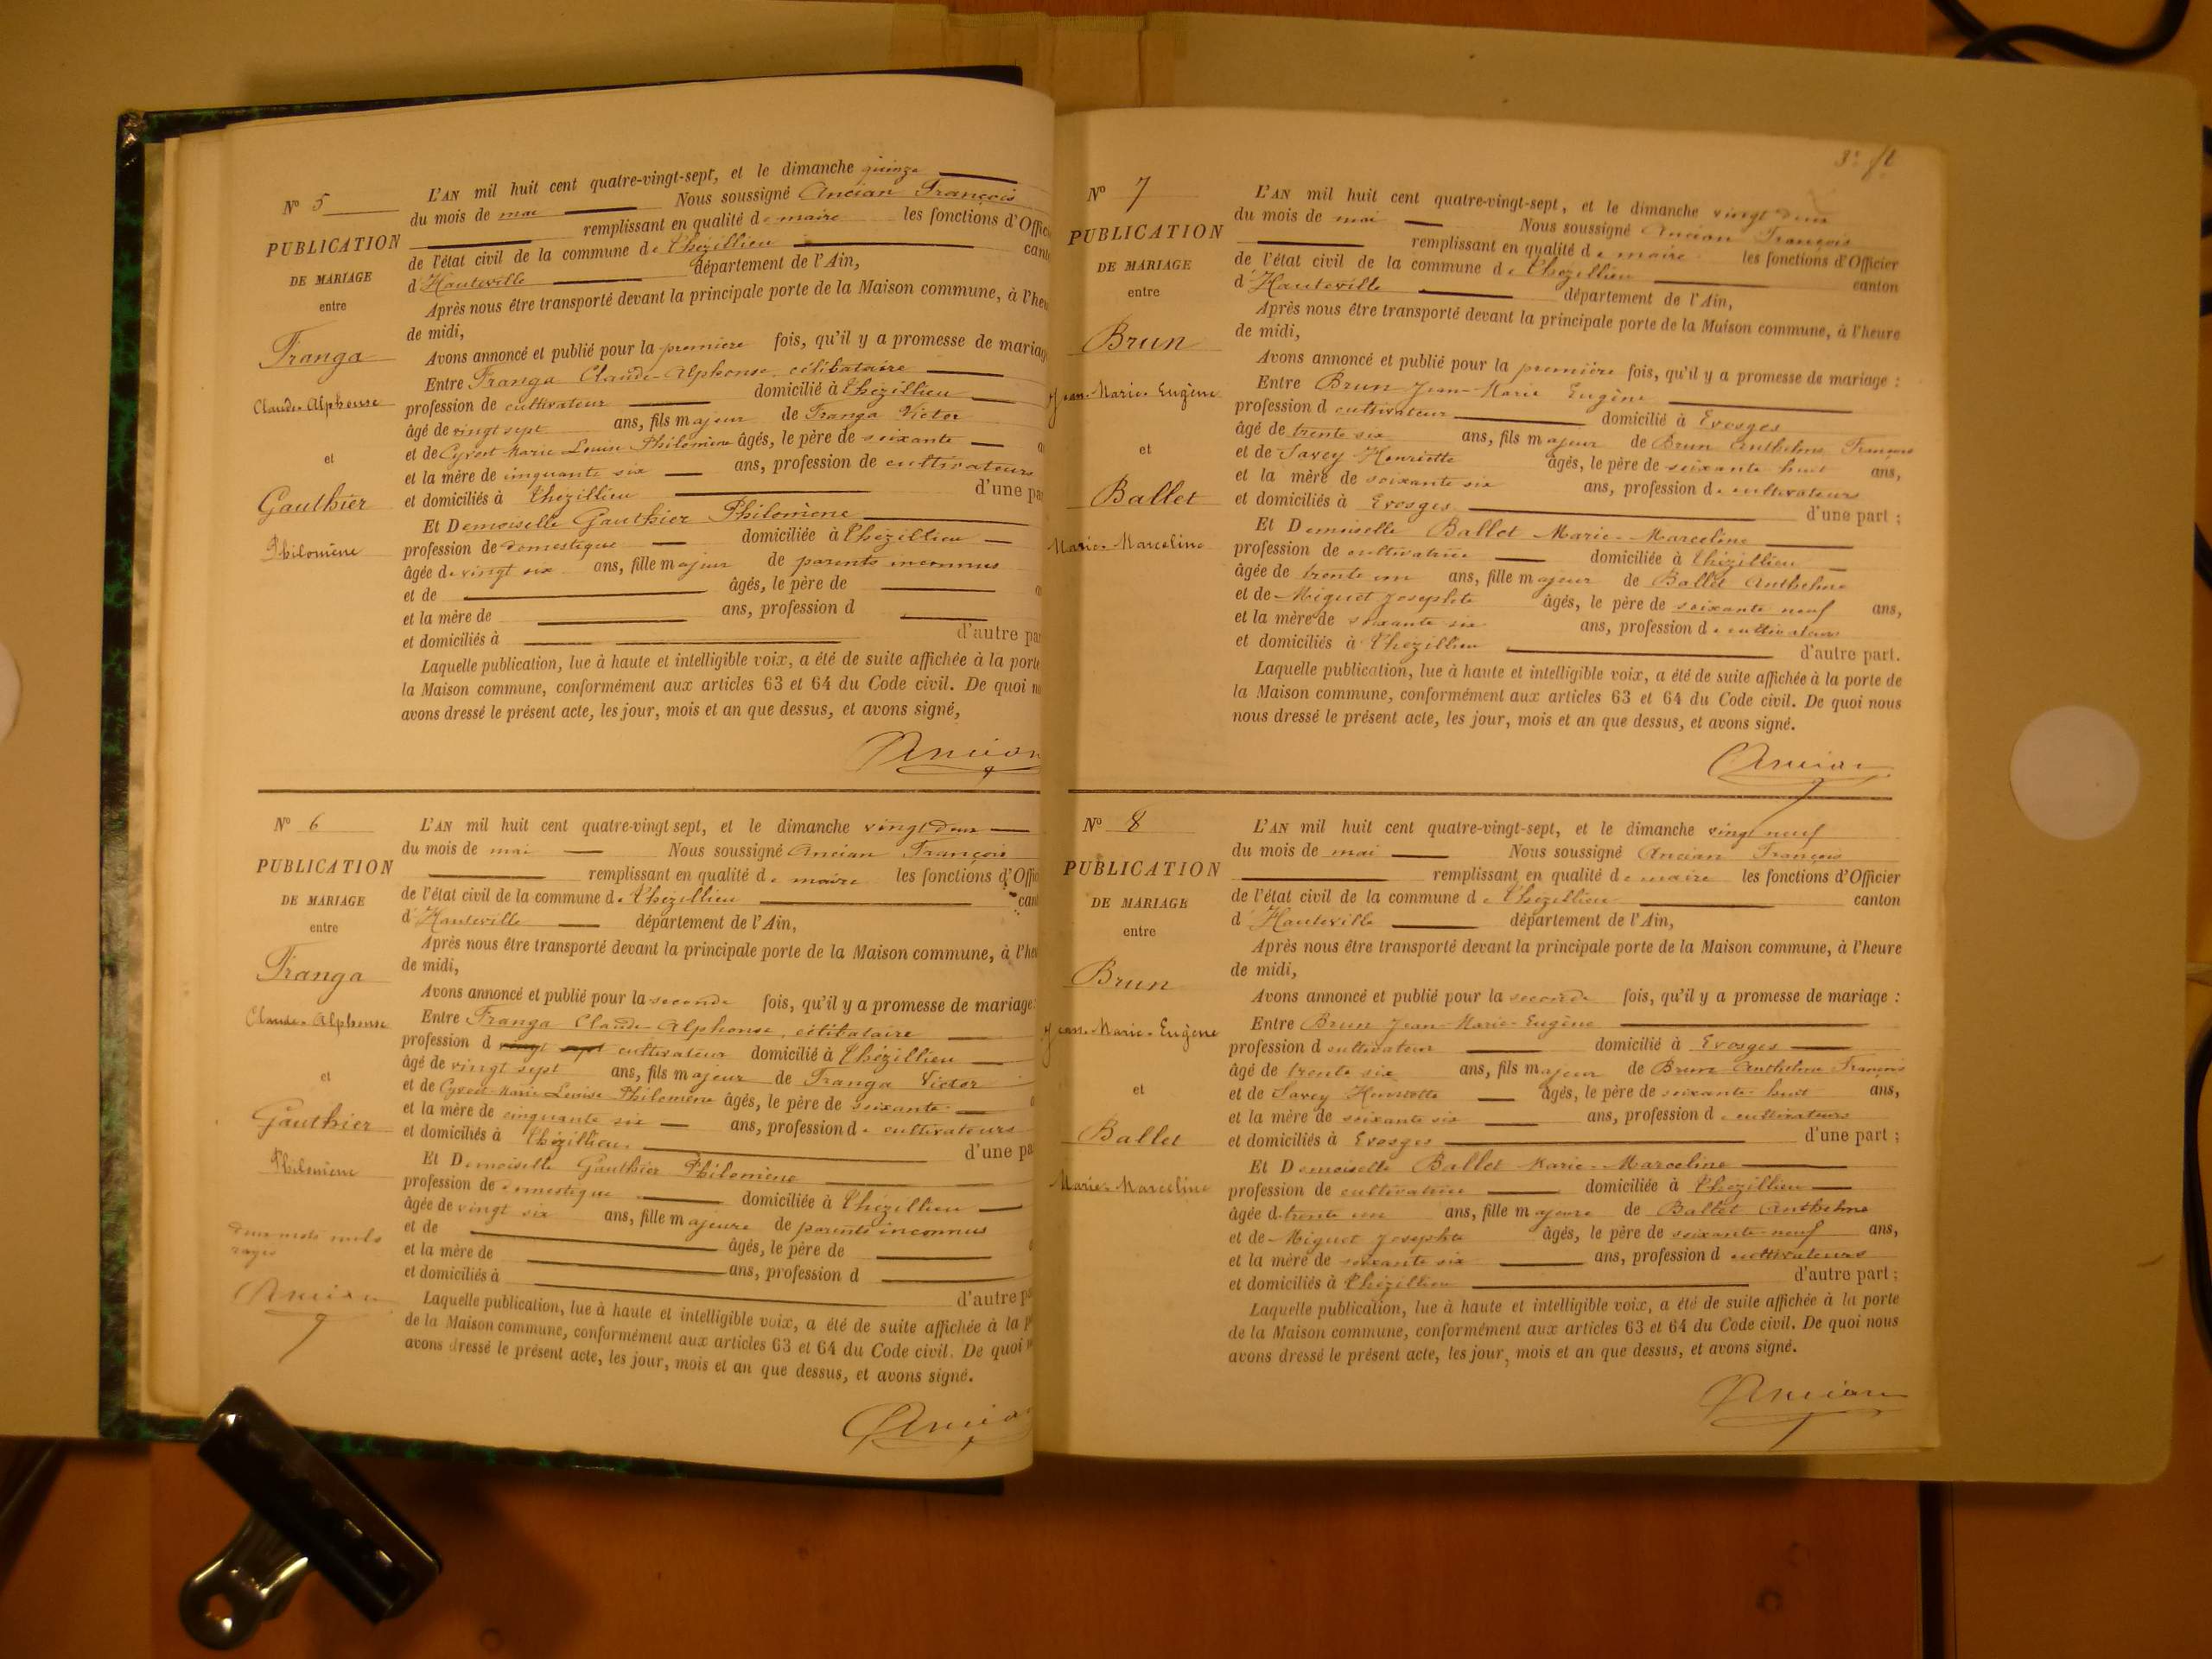 N° 5
PUBLICATION
DE MARIAGE
entre
Franga
Claude-Alphonse
et
Gauthier
Philomène
L'AN mil huit cent quatre-vingt-sept, et le dimanche quinze
du mois de mai Nous soussigné Ancian François
remplissant en qualité de maire les fonctions d'Offic
de l'état civil de la commune de Thézillieu cant
d'Hauteville département de l'Ain,
Après nous être transporté devant la principale porte de la Maison commune, à l'heu
de midi,
Avons annoncé et publié pour la première fois, qu'il y a promesse de mariag
Entre Franga Claude-Alphonse, célibataire
profession de cultivateur domicilié à Thézillieu
âgé de vingt sept ans, fils majeur de Franga Victor
et de Cyvert Marie Louise Philomène âgés, le père de soixante
et la mère de cinquante six ans, profession de cultivateurs
et domiciliés à Thézillieu d'une pa
Et Demoiselle Gauthier Philomène
profession de domestique domiciliée à Thézillieu
âgée de vingt six ans, fille majeur de parents inconnus
et de âgés, le père de
et la mère de ans, profession d
et domiciliés à d'autre pa
Laquelle publication, lue à haute et intelligible voix, a été de suite affichée à la porte
la Maison commune, conformément aux articles 63 et 64 du Code civil. De quoi n
avons dressé le présent acte, les jour, mois et an que dessus, et avons signé,
Ancian
N° 6
PUBLICATION
DE MARIAGE
entre
Franga
Claude-Alphonse
et
Gauthier
Philomène
deux mots nuls
rayés
Ancian
L'AN mil huit cent quatre-vingt sept, et le dimanche vingt deux
du mois de mai Nous soussigné Ancian François
remplissant en qualité de maire les fonctions d'Offi
de l'état civil de la commune de Thézillieu can
d'Hauteville département de l'Ain,
Après nous être transporté devant la principale porte de la Maison commune, à l'he
de midi,
Avons annoncé et publié pour la seconde fois, qu'il y a promesse de mariage:
Entre Franga Claude-Alphonse, célibataire
profession d vingt sept cultivateur domicilié à Thézillieu
âgé de vingt sept ans, fils majeur de Franga Victor
et de Cyvert Marie Louise Philomène âgés, le père de soixante
et la mère de cinquante six ans, profession de cultivateurs
et domiciliés à Thézillieu d'une pa
Et Demoiselle Gauthier Philomène
profession de domestique domiciliée à Thézillieu
âgée de vingt six ans, fille majeure de parents inconnus
et de
et la mère de âgés, le père de
et domiciliés à ans, profession d
d'autre p
Laquelle publication, lue à haute et intelligible voix, a été de suite affichée à la p
de la Maison commune, conformément aux articles 63 et 64 du Code civil. De quoi
avons dressé le présent acte, les jour, mois et an que dessus, et avons signé.
Ancian
N° 7
PUBLICATION
DE MARIAGE
entre
Brun
Jean-Marie-Eugène
et
Ballet
Marie-Marceline
L'AN mil huit cent quatre-vingt-sept, et le dimanche vingt deux
du mois de mai Nous soussigné Ancian François
remplissant en qualité de maire les fonctions d'Officier
de l'état civil de la commune de Thézillieu canton
d'Hauteville département de l'Ain,
Après nous être transporté devant la principale porte de la Maison commune, à l'heure
de midi,
Avons annoncé et publié pour la première fois, qu'il y a promesse de mariage :
Entre Brun Jean-Marie Eugène
profession d cultivateur domicilié à Evosges
âgé de trente six ans, fils majeur de Brun Anthelme François
et de Savey Henriette âgés, le père de soixante huit ans,
et la mère de soixante six ans, profession de cultivateurs
et domiciliés à Evosges d'une part ;
Et Demoiselle Ballet Marie-Marceline
profession de cultivatrice domiciliée à Thézillieu
âgée de trente un ans, fille majeur de Ballet Anthelme
et de Miguet Josephte âgés, le père de soixante neuf ans,
et la mère de soixante six ans, profession de cultivateurs
et domiciliés à Thézillieu d'autre part.
Laquelle publication, lue à haute et intelligible voix, a été de suite affichée à la porte de
la Maison commune, conformément aux articles 63 et 64 du Code civil. De quoi nous
nous dressé le présent acte, les jour, mois et an que dessus, et avons signé.
Ancian
N° 8
PUBLICATION
DE MARIAGE
entre
Brun
Jean-Marie-Eugène
et
Ballet
Marie-Marceline
L'AN mil huit cent quatre-vingt-sept, et le dimanche vingt neuf
du mois de mai Nous soussigné Ancian François
remplissant en qualité de maire les fonctions d'Officier
de l'état civil de la commune de Thézillieu canton
d'Hauteville département de l'Ain,
Après nous être transporté devant la principale porte de la Maison commune, à l'heure
de midi,
Avons annoncé et publié pour la seconde fois, qu'il y a promesse de mariage :
Entre Brun Jean-Marie-Eugène
profession d cultivateur domicilié à Evosges
âgé de trente six ans, fils majeur de Brun Anthelme François
et de Savey Henriette âgés, le père de soixante huit ans,
et la mère de soixante six ans, profession de cultivateurs
et domiciliés à Evosges d'une part ;
Et Demoiselle Ballet Marie-Marceline
profession de cultivatrice domiciliée à Thézillieu
âgée d trente un ans, fille majeure de Ballet Anthelme
et de Miguet Josephte âgés, le père de soixante-neuf ans,
et la mère de soixante six ans, profession d cultivateurs
et domiciliés à Thézillieu d'autre part ;
Laquelle publication, lue à haute et intelligible voix, a été de suite affichée à la porte
de la Maison commune, conformément aux articles 63 et 64 du Code civil. De quoi nous
avons dressé le présent acte, les jour, mois et an que dessus, et avons signé.
Ancian